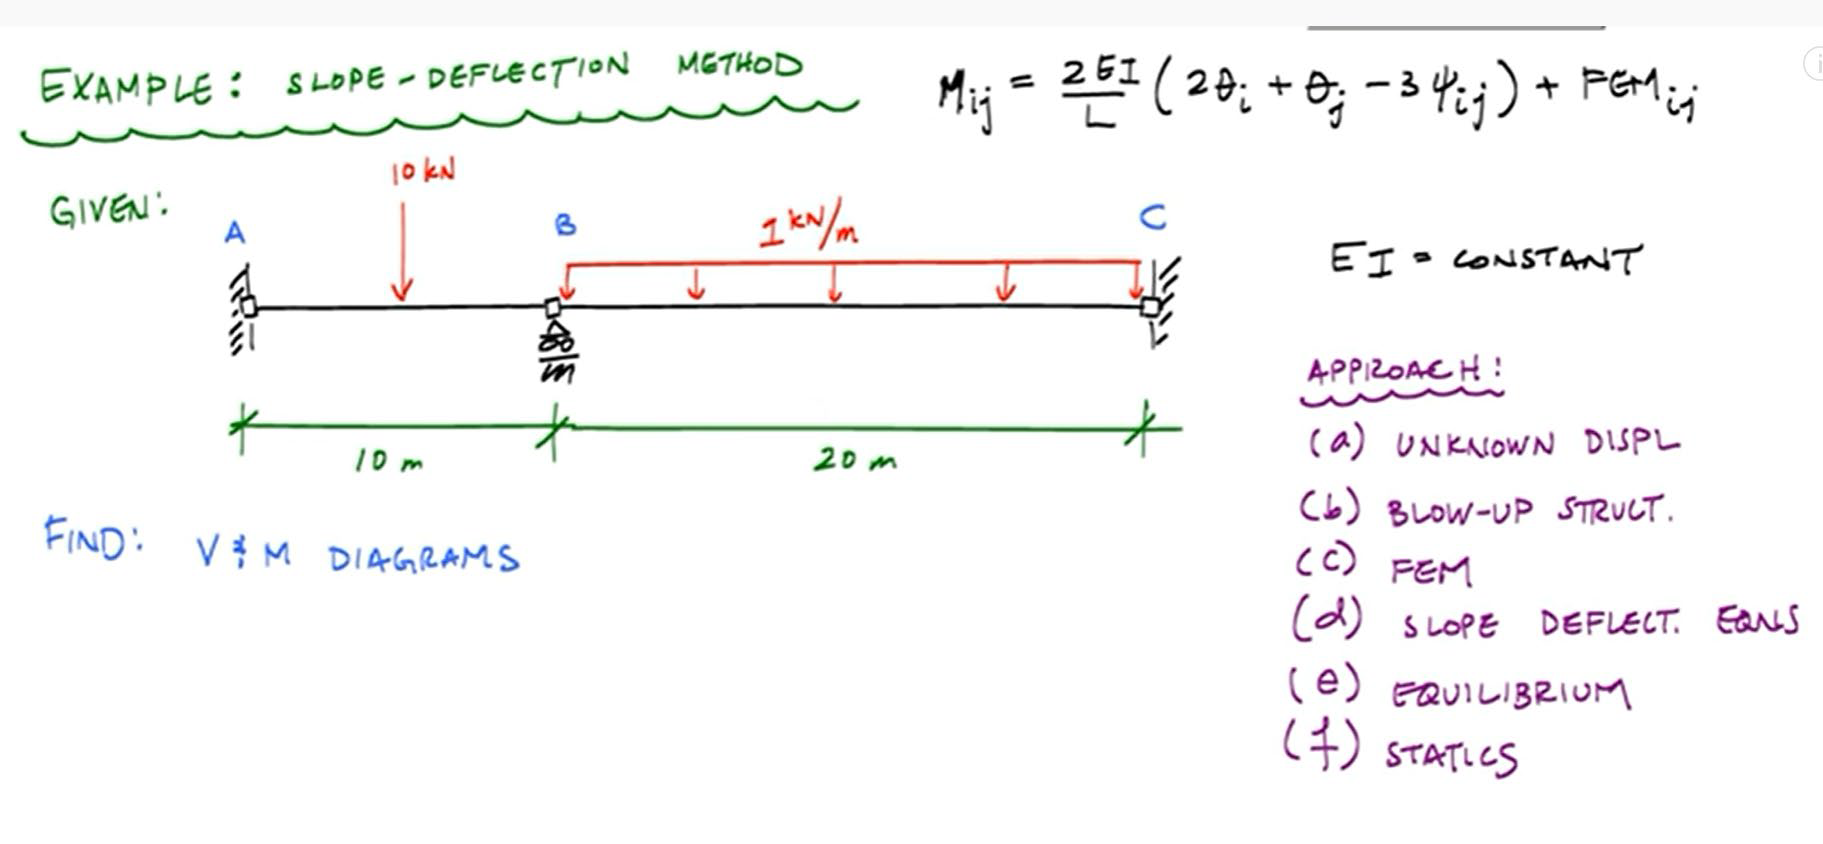 EXAMPLE: SLOPE-DEFLECTION METHOD
Mij = 2EI/L (2θi + θj - 3ψij) + FEMij
GIVEN:
10 kN
A
B
1 kN/m
C
EI = CONSTANT
10 m
20 m
FIND: V & M DIAGRAMS
APPROACH:
(a) UNKNOWN DISPL
(b) BLOW-UP STRUCT.
(c) FEM
(d) SLOPE DEFLECT. EQNS
(e) EQUILIBRIUM
(f) STATICS